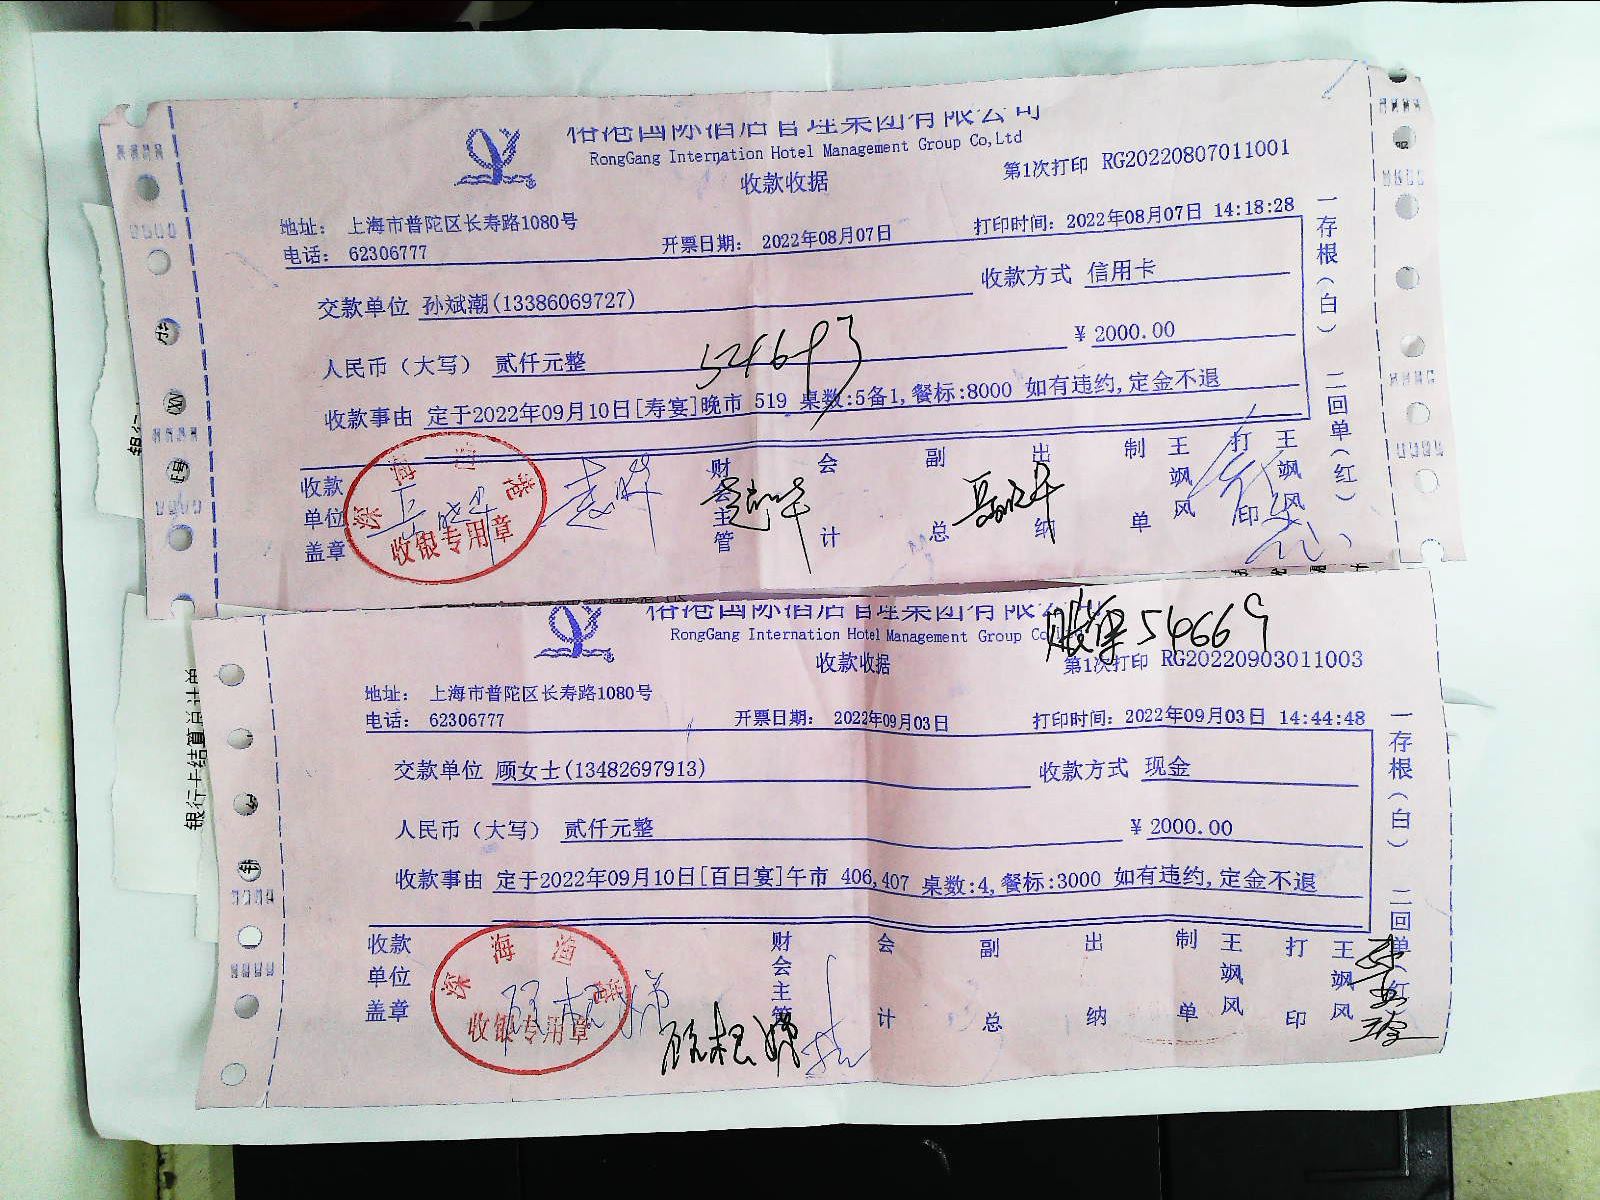 裕港国际酒店管理集团有限公司
RongGang Internation Hotel Management Group Co,Ltd
收款收据
第1次打印 RG20220807011001
地址： 上海市普陀区长寿路1080号
电话： 62306777
开票日期： 2022年08月07日
打印时间：2022年08月07日 14:18:28
交款单位 孙斌潮(13386069727)
收款方式 信用卡
人民币（大写） 贰仟元整
￥2000.00
收款事由 定于2022年09月10日[寿宴]晚市 519 桌数:5备1,餐标:8000 如有违约,定金不退
一存根（白） 二回单（红）
收款单位盖章
深海渔港
收银专用章
财会主管
会计
副总
出纳
制单
王飒风
打印
王飒风
裕港国际酒店管理集团有限
RongGang Internation Hotel Management Group Co
收款收据
54669
第1次打印 RG20220903011003
地址： 上海市普陀区长寿路1080号
电话： 62306777
开票日期： 2022年09月03日
打印时间：2022年09月03日 14:44:48
交款单位 顾女士(13482697913)
收款方式 现金
人民币（大写） 贰仟元整
￥2000.00
收款事由 定于2022年09月10日[百日宴]午市 406,407 桌数:4,餐标:3000 如有违约,定金不退
一存根（白） 二回单（红）
收款单位盖章
深海渔港
收银专用章
财会主管
会计
副总
出纳
制单
王飒风
打印
王飒风
银行卡结算总计单